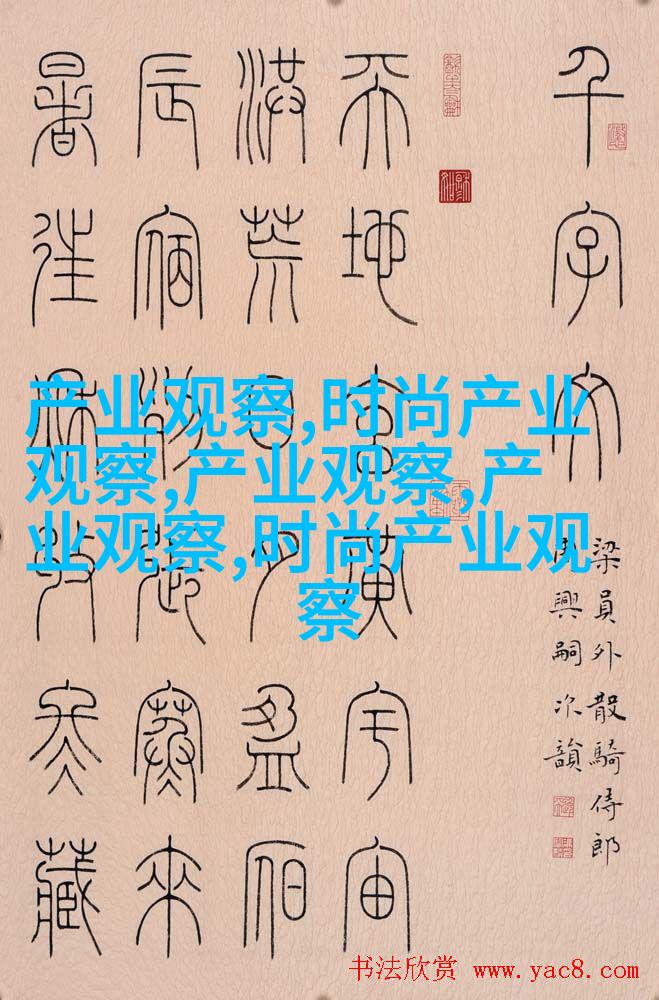 千字文
梁員外散騎侍郎
周興嗣次韻
天地玄黃宇宙
洪荒日月盈昃
辰宿列張寒來
暑往秋收冬藏
产业观察,时尚产业
观察,产业观察,产
业观察,时尚产业观
察
书法欣赏 www.yac8.com